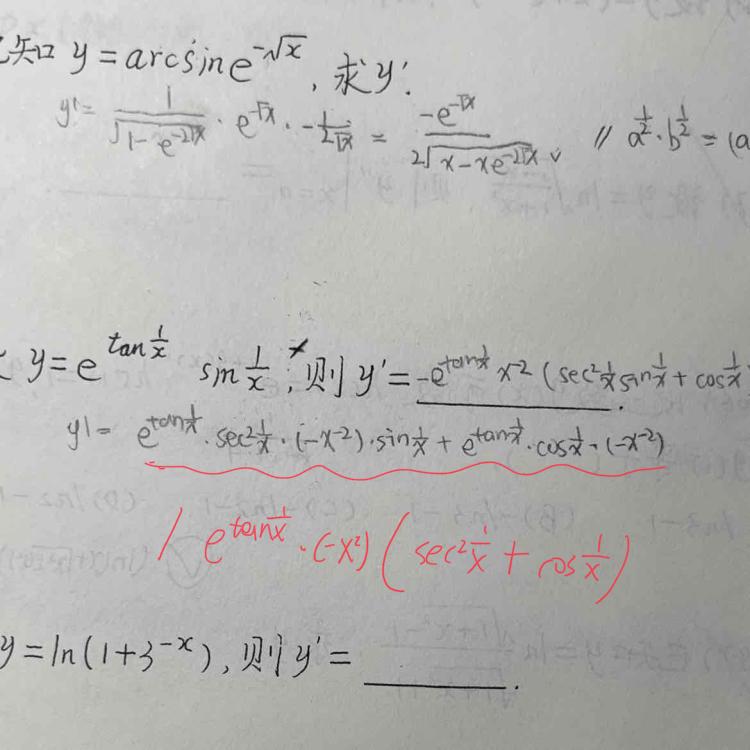 知 y = arcsin e^{-√x}, 求 y'.
y' = \frac{1}{\sqrt{1-e^{-2√x}}} · e^{-√x} · -\frac{1}{2√x} = \frac{-e^{-√x}}{2\sqrt{x-xe^{-2√x}}} ✓ // a^{\frac{1}{2}}·b^{\frac{1}{2}} = (a
y = e^{tan\frac{1}{x}} sin\frac{1}{x}, 则 y' = -e^{tan\frac{1}{x}} x^{-2} (sec²\frac{1}{x} sin\frac{1}{x} + cos\frac{1}{x}
y' = e^{tan\frac{1}{x}} · sec²\frac{1}{x} · (-x^{-2}) · sin\frac{1}{x} + e^{tan\frac{1}{x}} · cos\frac{1}{x} · (-x^{-2})
/ e^{tan\frac{1}{x}} · (-x²) (sec²\frac{1}{x} + cos\frac{1}{x})
y = ln(1+3^{-x}), 则 y' = ______.